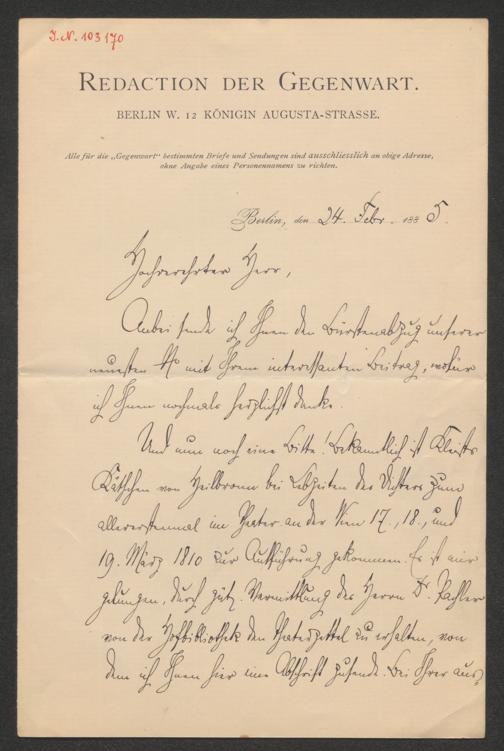 I.N. 103170
REDACTION DER GEGENWART.
BERLIN W. 12 KÖNIGIN AUGUSTA-STRASSE.
Alle für die „Gegenwart“ bestimmten Briefe und Sendungen sind ausschliesslich an obige Adresse,
ohne Angabe eines Personennamens zu richten.
Berlin, den 24. Febr. 1885.
Hochverehrter Herr,
Anbei sende ich Ihnen den Bürstenabzug unserer
neuesten Nr mit Ihrem interessanten Beitrag, wofür
ich Ihnen nochmals herzlichst danke.
Und nun noch eine Bitte! Bekanntlich ist Kleists
Käthchen von Heilbronn bei Lebzeiten des Dichters zum
allererstenmal im Theater an der Wien 17., 18., und
19. März 1810 zur Aufführung gekommen. Es ist mir
gelungen, durch gütg. Vermittlung des Herrn Dr. Pachler
von der Hofbibliothek den Theaterzettel zu erhalten, von
dem ich Ihnen hier eine Abschrift zusende. Bei Ihrer aus-